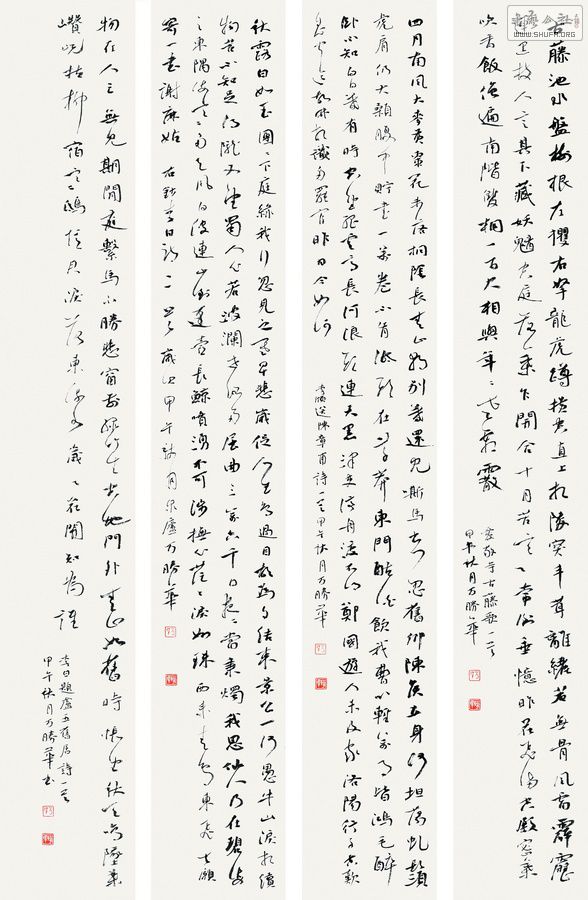 古藤池水盤樹根左攫右拏龍虎蹲橫空直上相陵突丰茸離纚若無骨風雷霹靂
連黑枝人言其下藏妖魑空庭落葉乍開合十月苦寒常倒垂憶昨花飛滿空殿密葉
吹香飯僧遍南階雙桐一百尺相與年年老霜霰
愛敬寺古藤歌一首
甲午秋月万勝華
四月南風大麥黃棗花未落桐陰長青山朝別暮還見嘶馬出門思舊鄉陳侯立身何坦蕩虬鬚
虎眉仍大顙腹中貯書一萬卷不肯低頭在草莽東門酤酒飲我曹心輕萬事皆鴻毛醉
臥不知白日暮有時空望孤雲高長河浪頭連天黑津吏停舟渡不得鄭國遊人未及家洛陽行子空歎
息聞道故林相識多罷官昨日今如何
李頎送陳章甫詩一首甲午秋月万勝華
秋露白如玉團團下庭綠我行忽見之寒早悲歲促人生鳥過目胡乃自結束景公一何愚牛山淚相續
物苦不知足得隴又望蜀人心若波瀾世路有屈曲三萬六千日夜夜當秉燭我思仙人乃在碧海
之東隅海寒多天風白波連山倒蓬壺長鯨噴湧不可涉撫心茫茫淚如珠西來青鳥東飛去願
寄一書謝麻姑 右錄李白詩二首歲次甲午秋月樂廬万勝華
物在人亡無見期閒庭繫馬不勝悲窗前綠竹生空地門外青山如舊時悵望秋天鳴墜葉
巑岏枯柳宿寒鴉憶君淚落東流水歲歲花開知為誰
李白題盧五舊居詩一首
甲午秋月万勝華書
WWW.SHUFA.ORG